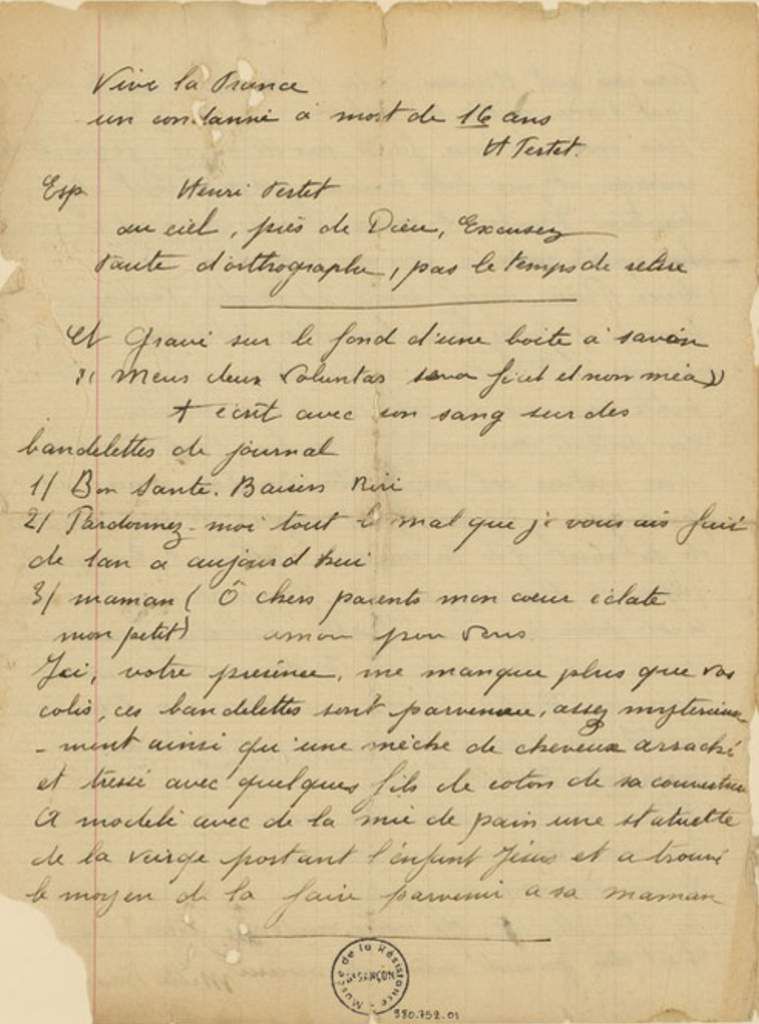 Vive la France
un condanné à mort de 16 ans
H Fertet.
Esp Henri Fertet
au ciel, près de Dieu, Excusez
faute d'orthographe, pas le temps de relire
Et Gravé sur le fond d'une boite à savon
Meus deux Voluntas fiat et non méa))
+ écrit avec son sang sur des
bandelettes de journal
1/ Bon Sante. Baisers Riri
2/ Pardonnez-moi tout le mal que je vous ais fait
de tan a aujourd hui
3/ maman ( Ô chers parents mon coeur éclate
mon petit) amour pour vous
Ici, votre présence, me manque plus que vos
colis, ces bandelettes sont parvenue, assez mysterieuse
- ment ainsi qu'une mèche de cheveux arraché
et tressé avec quelques fils de coton de sa couverture
A modelé avec de la mie de pain une statuette
de la vierge portant l'enfant Jésus et a trouvé
le moyen de la faire parvenir a sa maman
Musée de la Résistance - BESANÇON
980.752.01